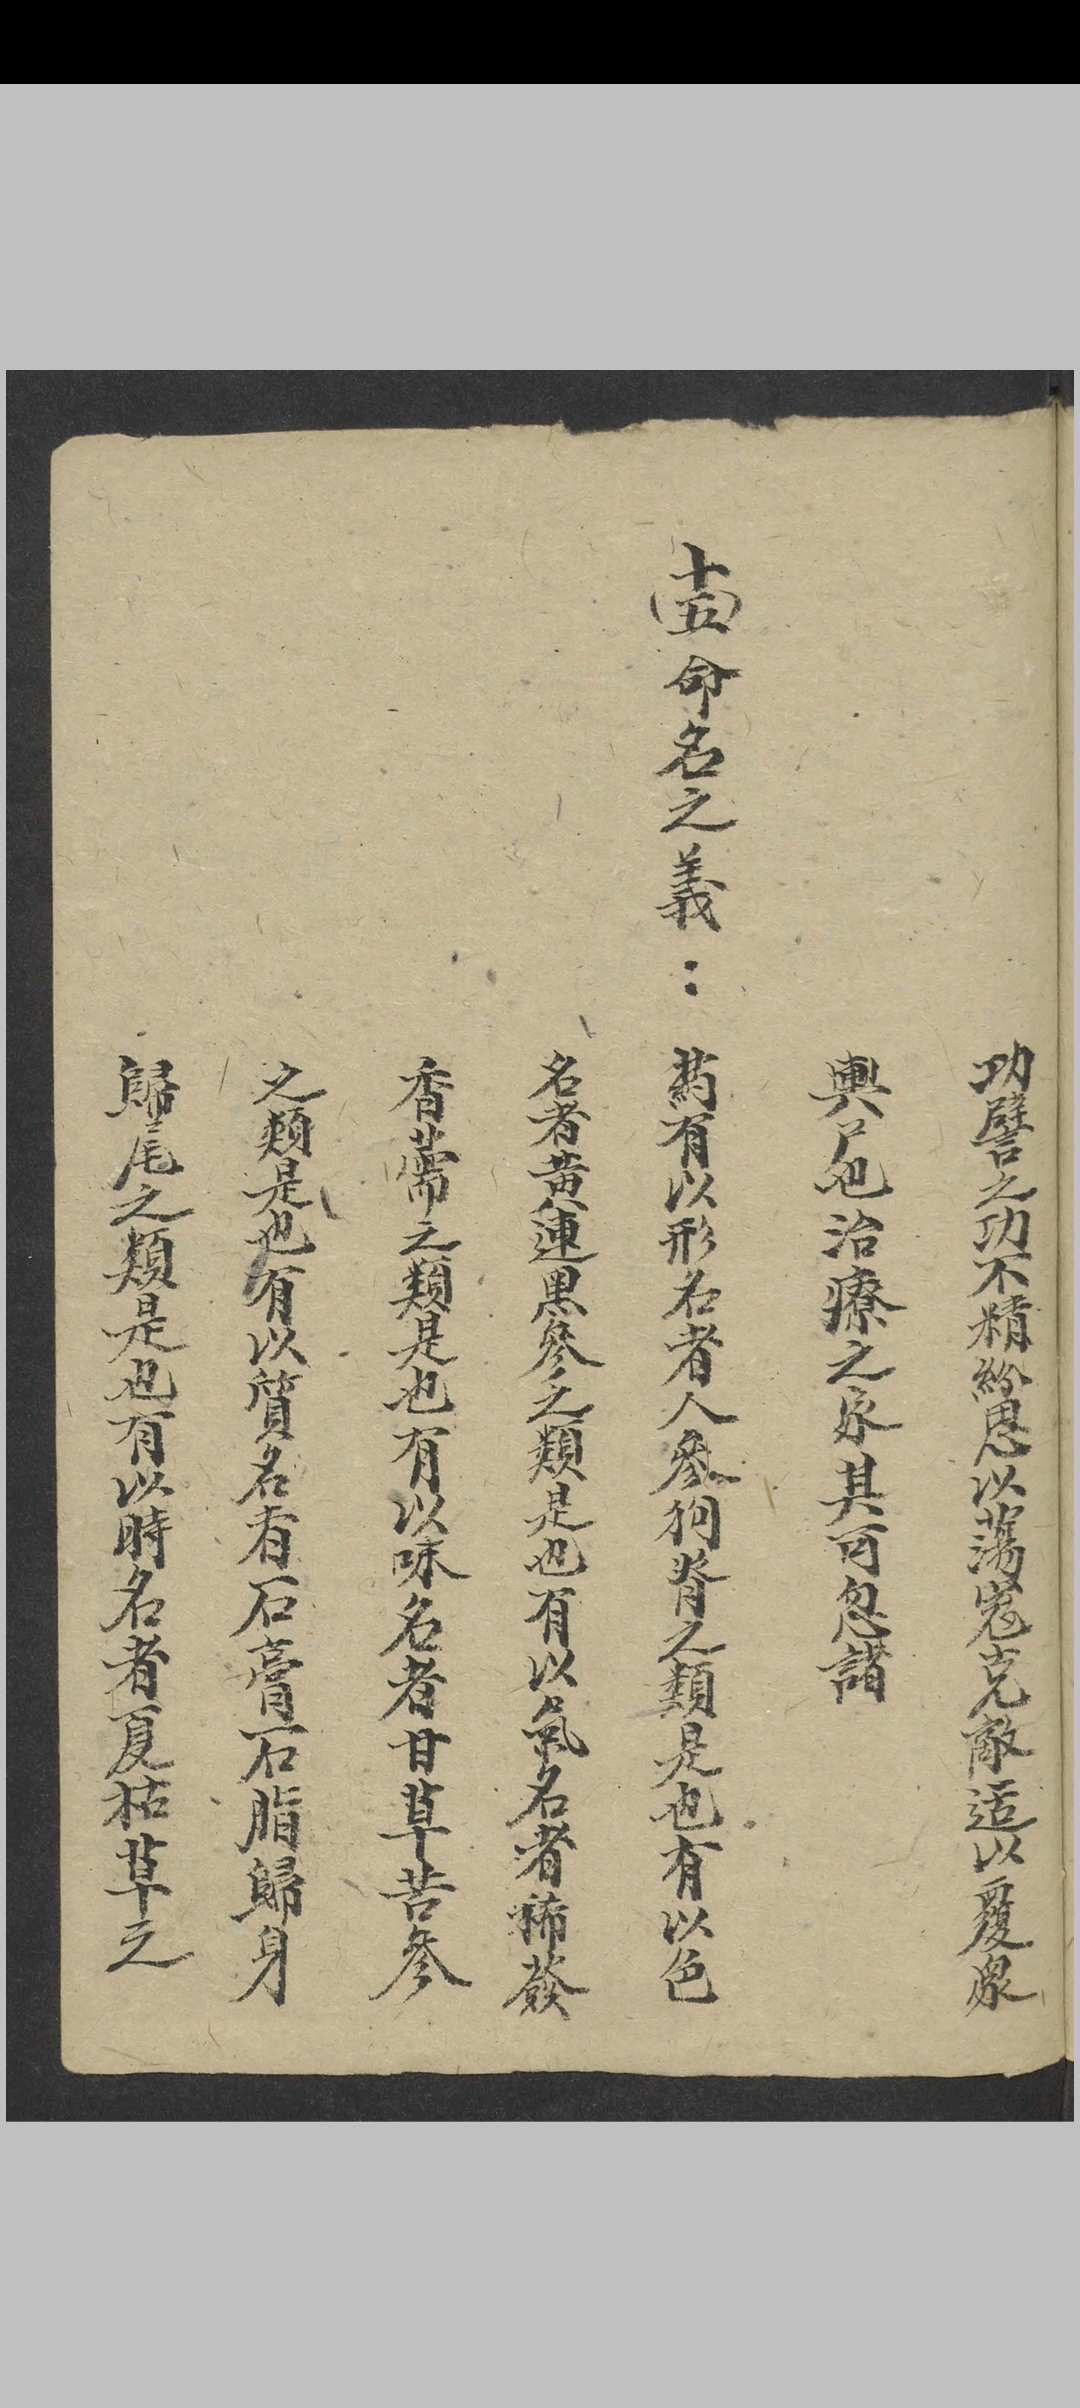 功譬之功不精紛思以蕩冦克敵适以覆衆
輿尸也治療之家其可忽諸
十五 命名之義： 葯有以形名者人參狗脊之類是也有以色
名者黄連黒參之類是也有以氣名者稀薟
香薷之類是也有以味名者甘草苦參
之類是也有以質名者石膏石脂歸身
歸尾之類是也有以時名者夏枯草之